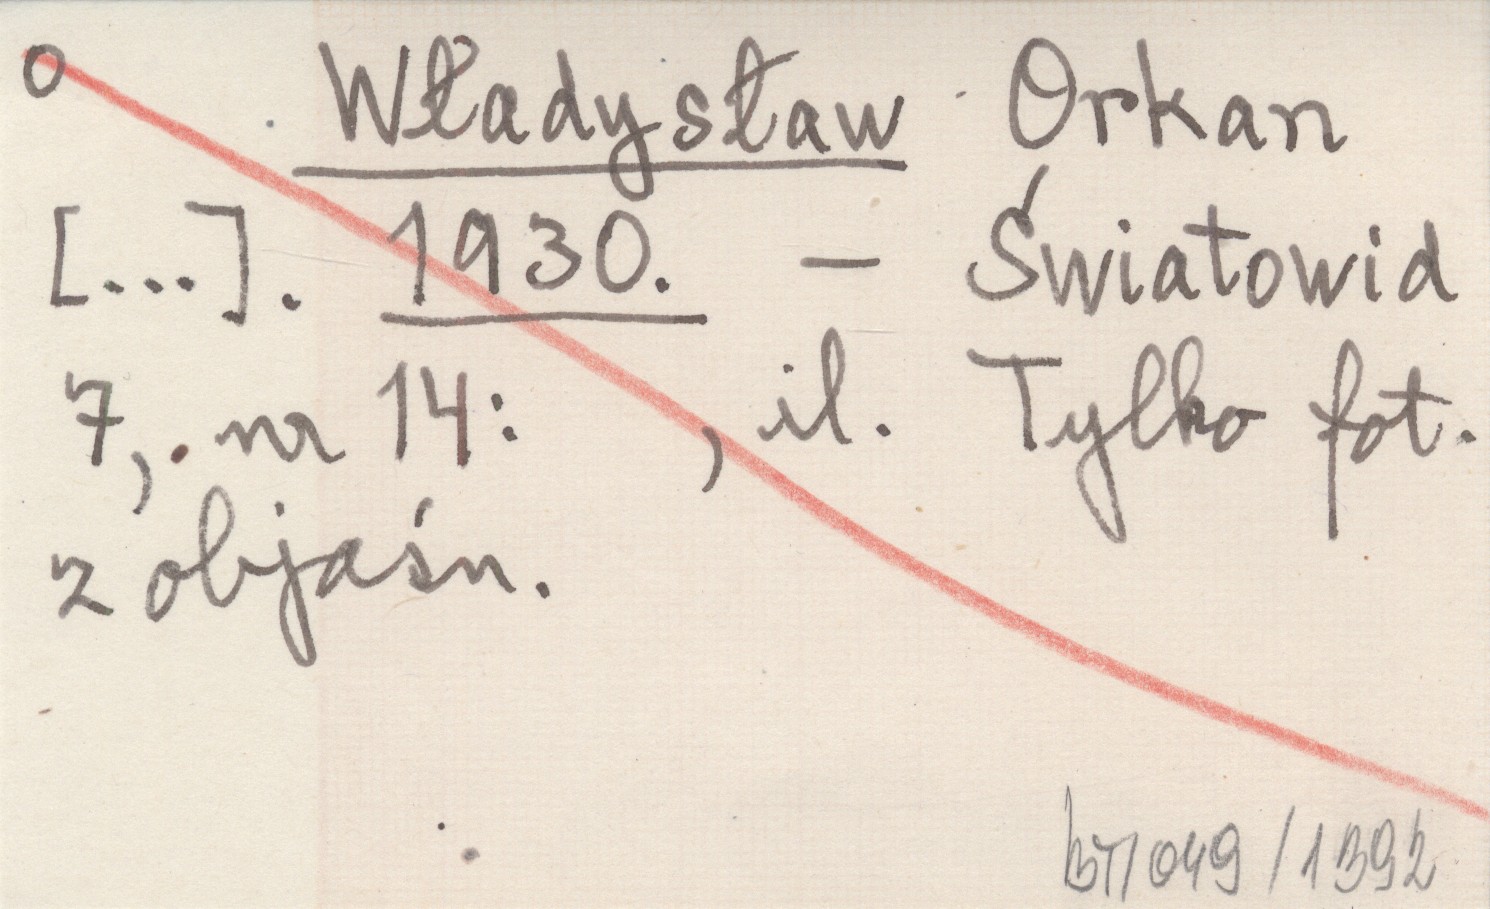 o Władysław Orkan
[...]. 1930. — Światowid
7, nr 14: , il. Tylko fot.
z objaśn.
BT/049/1392